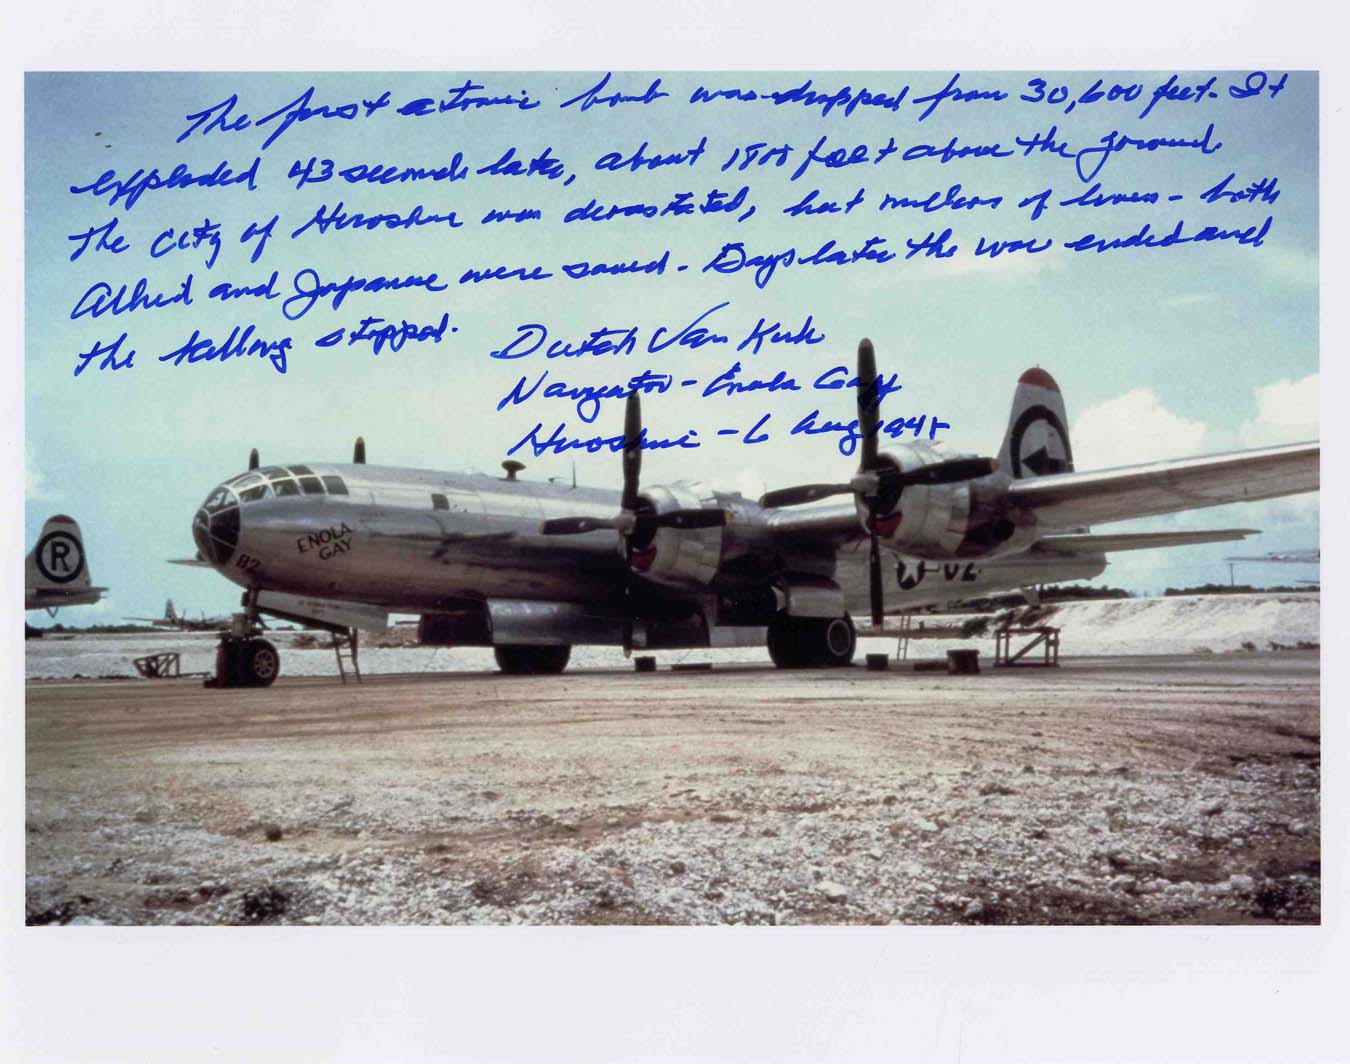 The first atomic bomb was dropped from 30,600 feet. It
exploded 43 seconds later, about 1800 feet above the ground.
The city of Hiroshima was devastated, but millions of lives - both
Allied and Japanese were saved. Days later the war ended and
the killing stopped.
Dutch Van Kirk
Navigator - Enola Gay
Hiroshima - 6 Aug 1945
ENOLA
GAY
82
R
82